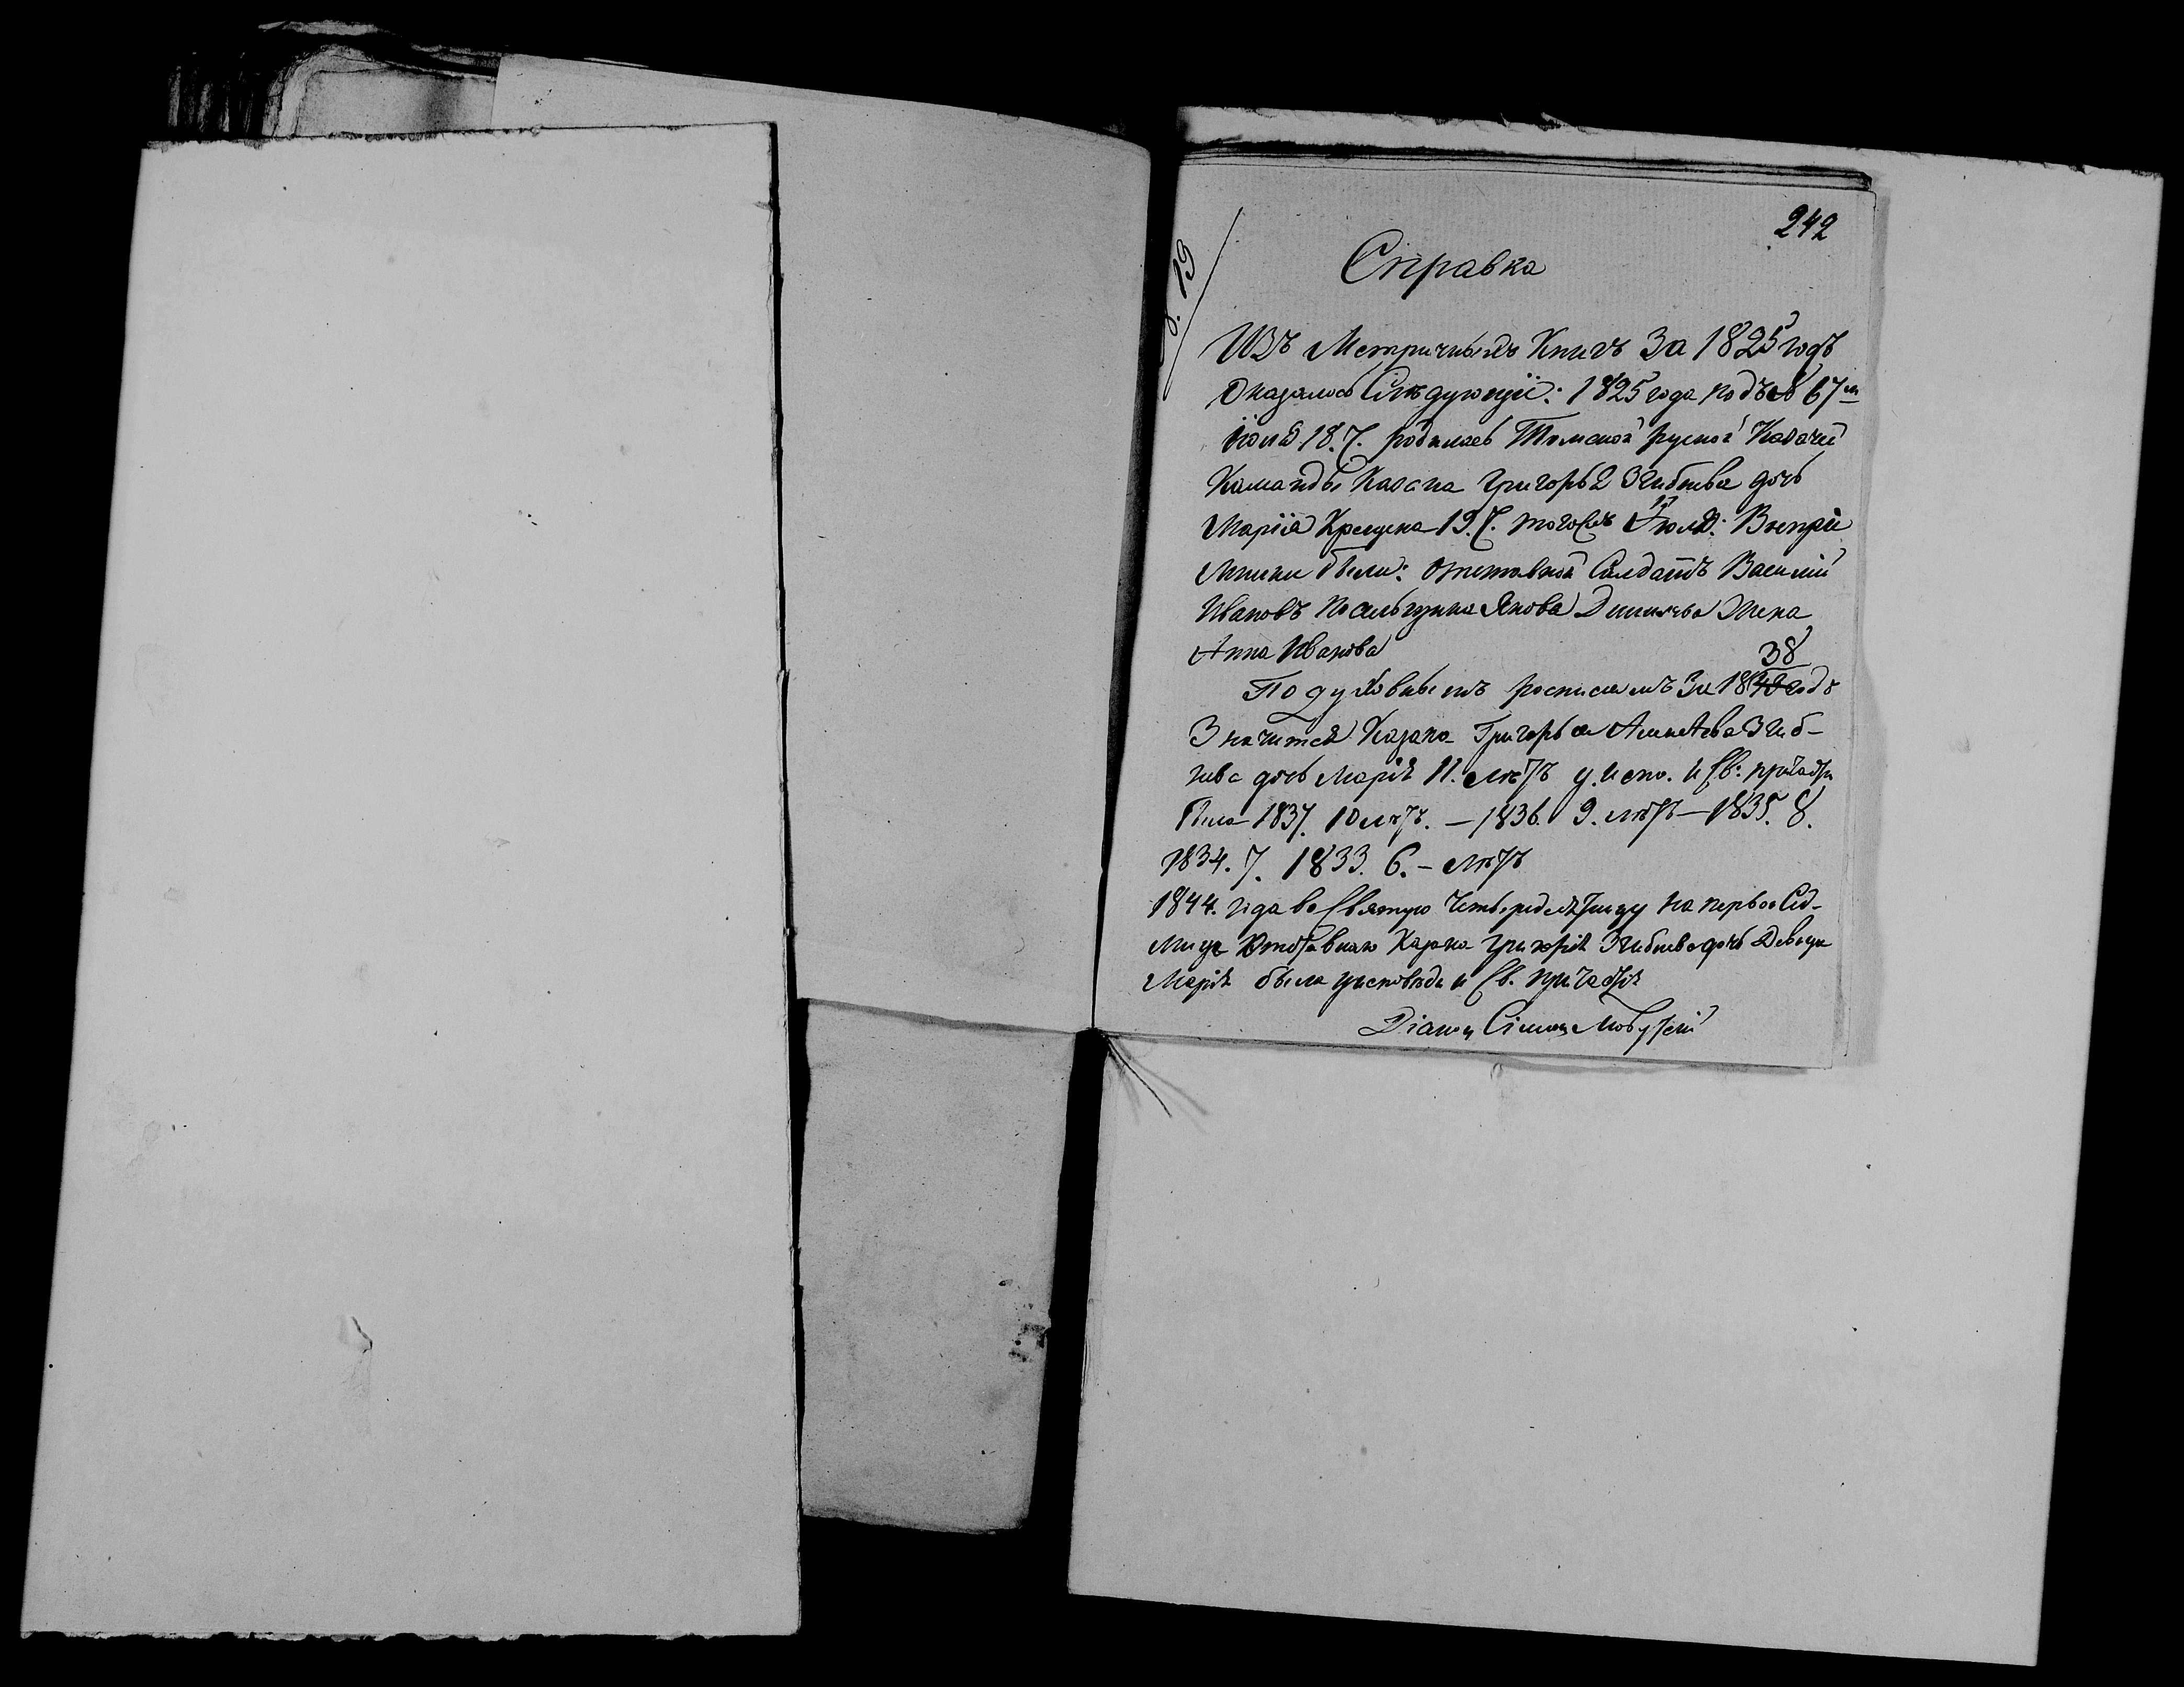 242
19
Справка
Изъ Метричныхъ Книгъ За 1825 годъ
Оказалось Следующіи: 1825 года подъ № 67м
Іюля 18.ч. родилась Томской руской Казачей
Команды Казака Григорья дочь
Марія Крещена 19.ч. тогожъ Іюля: Воспріе
мники были: отставной Салдатъ Василій
Ивановъ Посельщика Якова Жена
Анна Иванова
38
По духовнымъ росписямъ За 1843 годъ
Значится Казака Григорья
дочь Марія 11. летъ у испо. и Св: причастія
была 1837. 10 летъ. — 1836. 9. летъ — 1835. 8.
1834. 7. 1833. 6. — летъ
1844. года во Святую Четыредесятницу на первой Сед-
мице Отставнаго Казака Григорія дочь Девица
Марія была уисповеди и Св. причастія
Діакон Симон